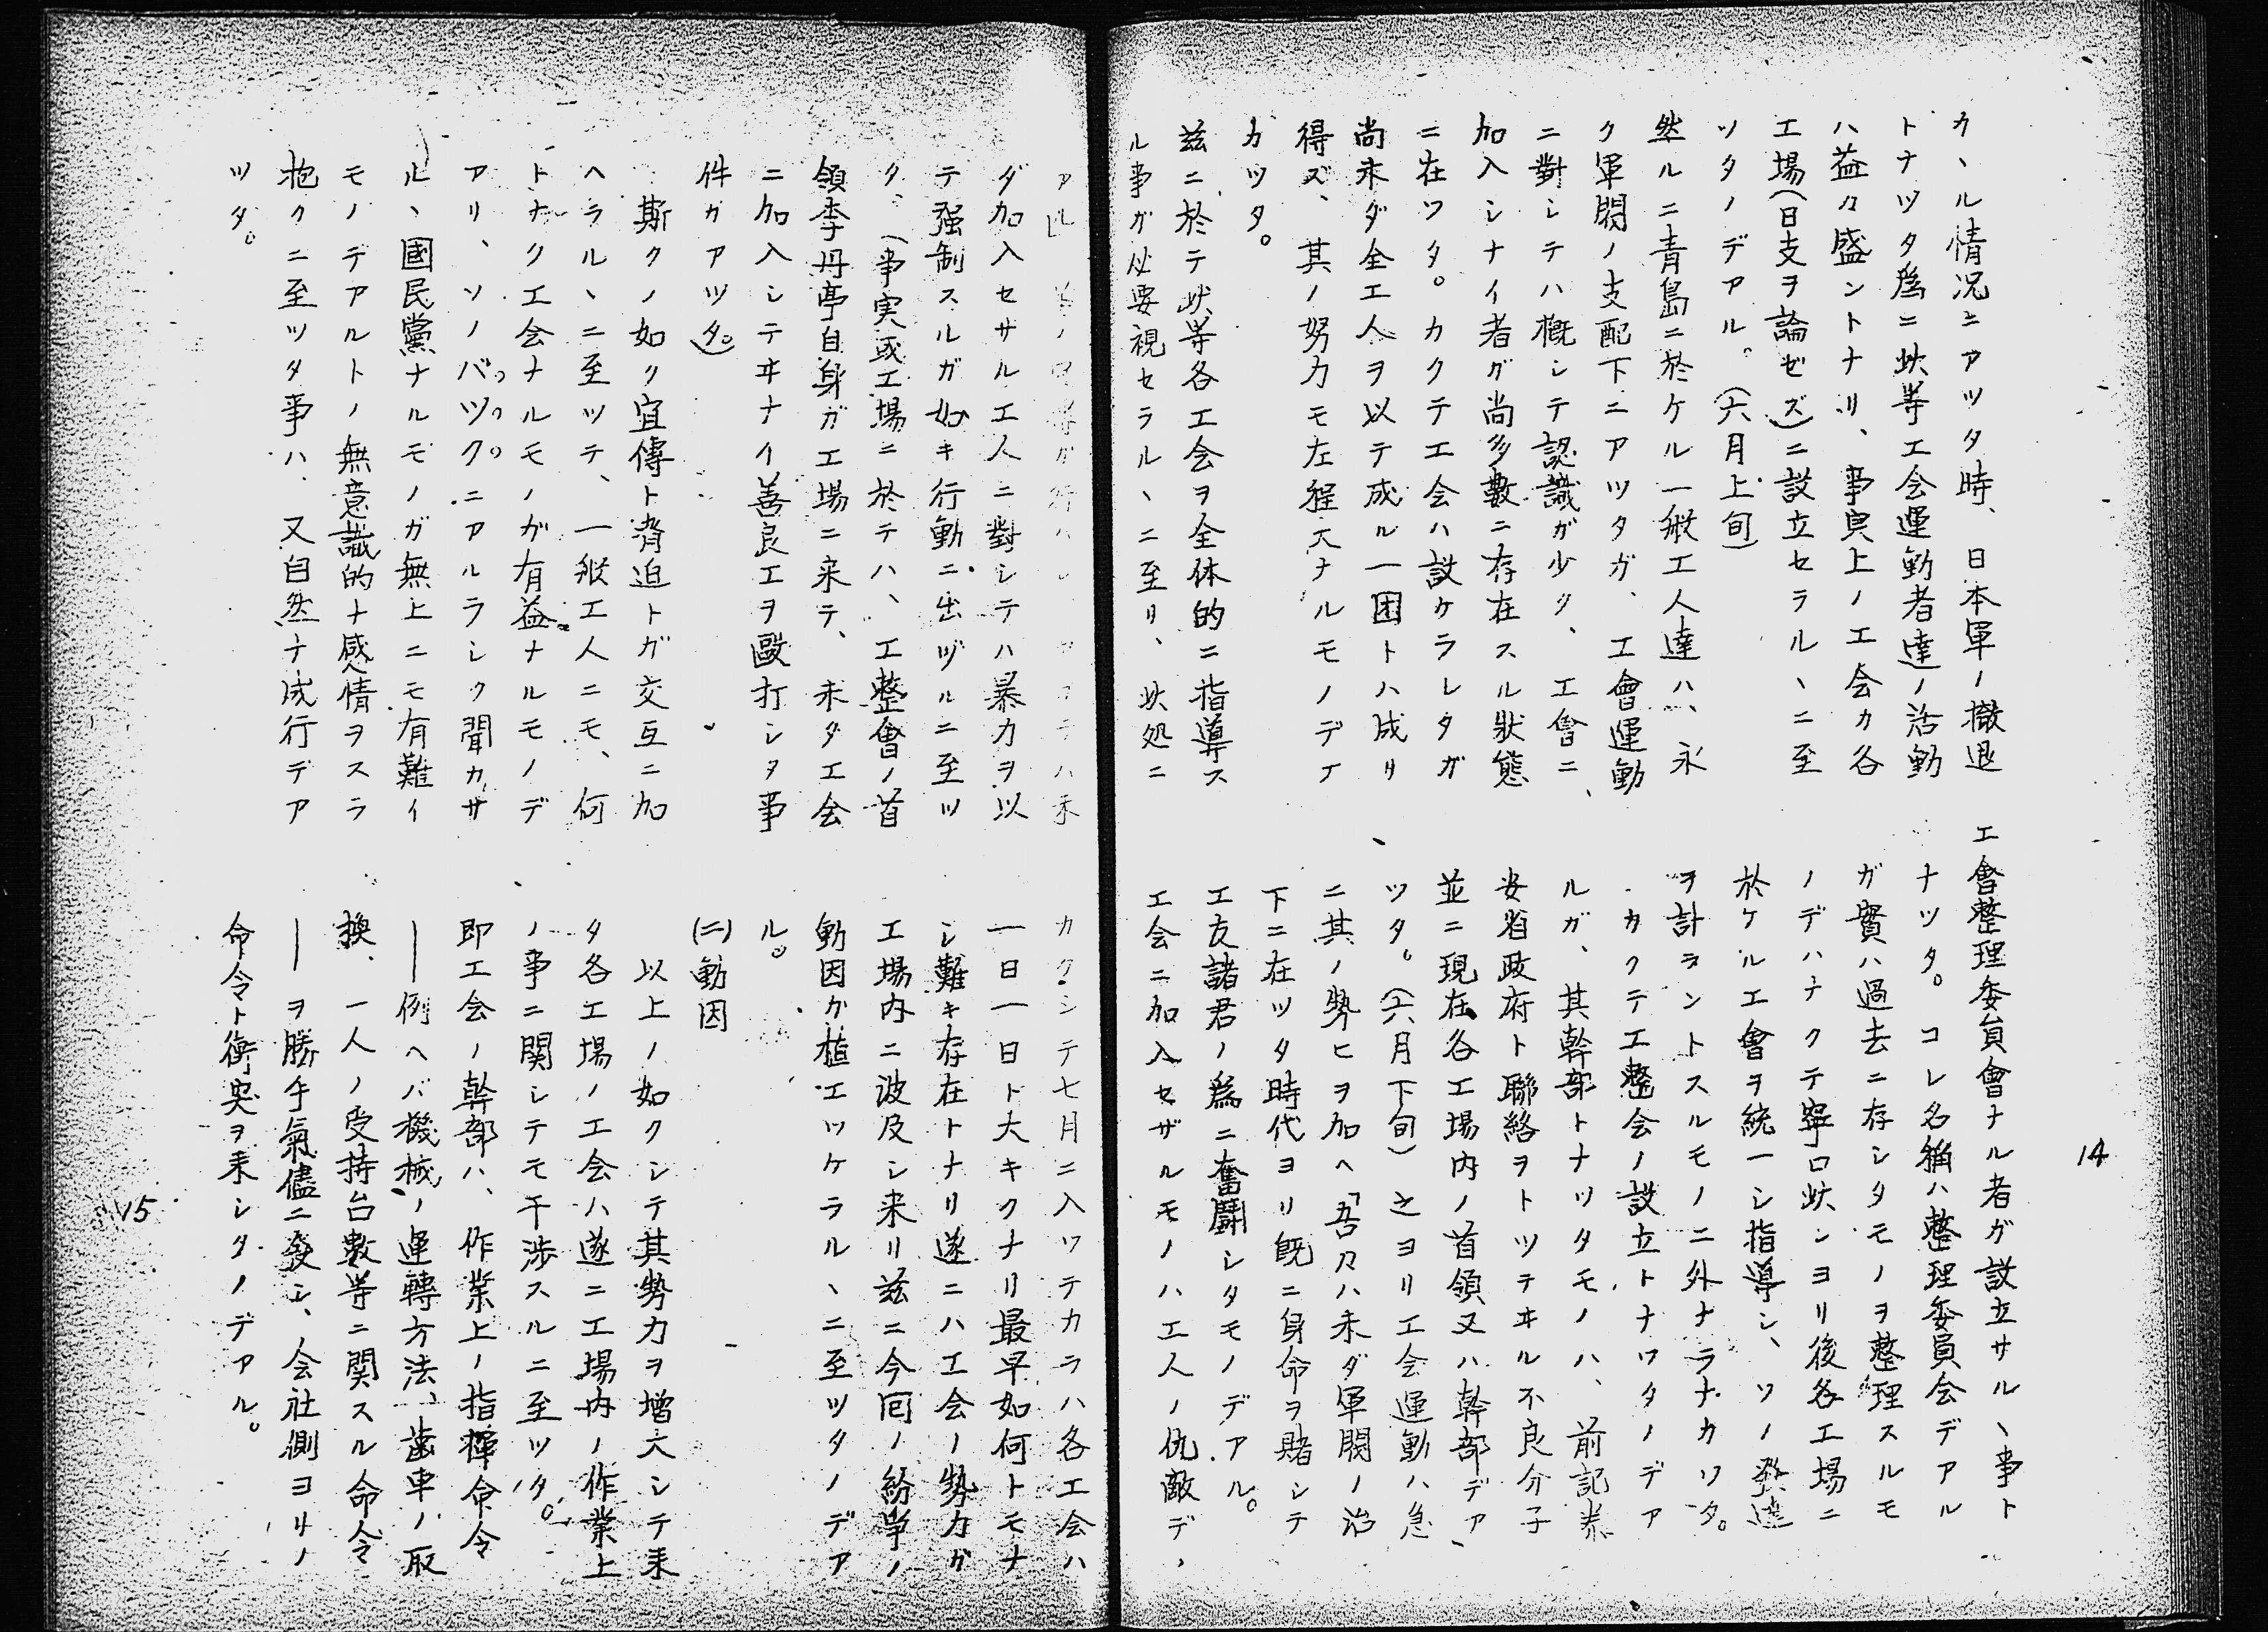 14
カヽル情況ニアツタ時、日本軍ノ撤退
トナツタ為ニ此等工会運動者達ノ活動
ハ益々盛ントナリ、事実上ノ工会カ各
工場(日支ヲ論ゼズ)ニ設立セラルヽニ至
ツタノデアル。(六月上旬)
然ルニ青島ニ於ケル一般工人達ハ、永
ク軍閥ノ支配下ニアツタガ、工會運動
ニ對シテハ概シテ認識ガ少ク、工會ニ
加入シナイ者ガ尚多數ニ存在スル狀態
ニ在ツタ。カクテ工会ハ設ケラレタガ
尚未ダ全工人ヲ以テ成ル一団トハ成リ
得ズ、其ノ努力モ左程大ナルモノデナ
カツタ。
茲ニ於テ此等各工会ヲ全体的ニ指導ス
ル事ガ必要視セラルヽニ至リ、此処ニ
工會整理委員會ナル者ガ設立サルヽ事ト
ナツタ。コレ名稱ハ整理委員会デアル
ガ實ハ過去ニ存シタモノヲ整理スルモ
ノデハナクテ寧ロ此レヨリ後各工場ニ
於ケル工會ヲ統一シ指導シ、ソノ發達
ヲ計ラントスルモノニ外ナラナカツタ。
カクテ工整会ノ設立トナツタノデア
ルガ、其幹部トナツタモノハ、前記泰
安省政府ト聯絡ヲトツテヰル不良分子
並ニ現在各工場内ノ首領又ハ幹部デア
ツタ。(六月下旬)之ヨリ工会運動ハ急
ニ其ノ勢ヒヲ加ヘ「吾々ハ未ダ軍閥ノ治
下ニ在ツタ時代ヨリ既ニ身命ヲ賭シテ
工友諸君ノ為ニ奮闘シタモノデアル。
工会ニ加入セザルモノハ工人ノ仇敵デ、
アル」
ダ加入セサル工人ニ對シテハ暴力ヲ以
テ强制スルガ如キ行動ニ出ヅルニ至ツ
タ、(事実或工場ニ於テハ、工整會ノ首
領李丹亭自身ガ工場ニ来テ、未ダ工会
ニ加入シテヰナイ善良工ヲ毆打シタ事
件ガアツタ。)
斯クノ如ク宣傳ト脅迫トガ交互ニ加
ヘラルヽニ至ツテ、一般工人ニモ、何
トナク工会ナルモノガ有益ナルモノデ
アリ、ソノバツクニアルラシク聞カサ
ルヽ國民黨ナルモノガ無上ニモ有難イ
モノデアルトノ無意識的ナ感情ヲスラ
抱クニ至ツタ事ハ、又自然ナ成行デア
ツタ。
カクシテ七月ニ入ツテカラハ各工会ハ
一日一日ト大キクナリ最早如何トモナ
シ難キ存在トナリ遂ニハ工会ノ勢力ガ
工場内ニ波及シ来リ茲ニ今回ノ紛爭ノ
動因ガ植エツケラルヽニ至ツタノデア
ル。
(二)動因
以上ノ如クシテ其勢力ヲ増大シテ来
タ各工場ノ工会ハ遂ニ工場内ノ作業上
ノ事ニ関シテモ干渉スルニ至ツタ。
即工会ノ幹部ハ、作業上ノ指揮命令
―例ヘバ機械ノ運轉方法、歯車ノ取
換、一人ノ受持台數等ニ関スル命令
―ヲ勝手氣儘ニ發シ、会社側ヨリノ
命令ト衝突ヲ来シタノデアル。
15